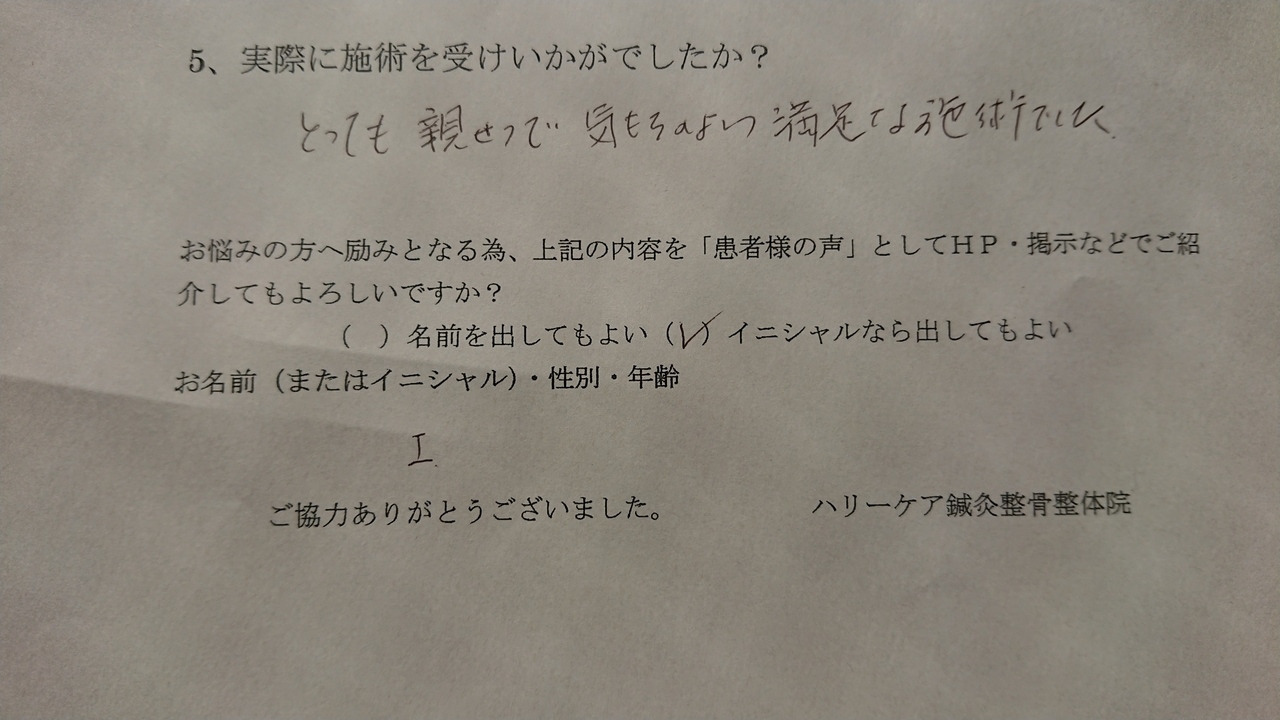 5、実際に施術を受けいかがでしたか？
とっても 親せつで 気もちのよい 満足な施術でした.
お悩みの方へ励みとなる為、上記の内容を「患者様の声」としてＨＰ・掲示などでご紹
介してもよろしいですか？
（ ）名前を出してもよい（✓）イニシャルなら出してもよい
お名前（またはイニシャル）・性別・年齢
I.
ご協力ありがとうございました。 ハリーケア鍼灸整骨整体院